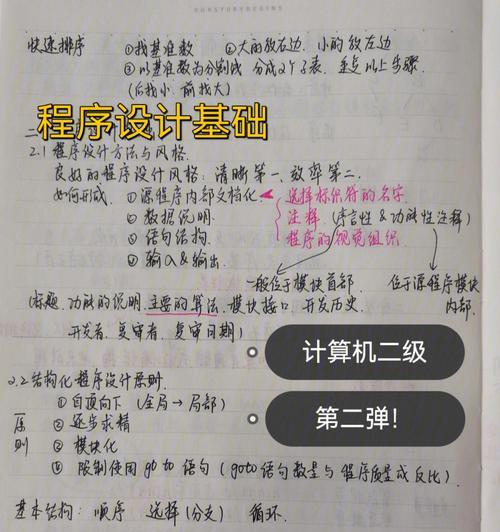 OUR STORY BEGINS
快速排序 ①找基准数 ②大的放右边,小的放左边
③以基准数为分割线 分成2个子表,重复以上步骤.
(后找小,前找大)
程序设计基础
二、
2.1 程序设计方法与风格.
良好的程序设计风格:清晰第一、效率第二.
如何形成. ①源程序内部文档化 选择标识符的名字
②数据说明. 注释 (序言性&功能性注释)
③语句结构. 程序的视觉组织
④输入&输出.
一般位于模块首部. 位于源程序模块
内部.
(标题.功能的说明.主要的算法.模块接口.开发历史.
开发者.复审者.复审日期)
计算机二级
2.2结构化程序设计原则.
第二弹!
原则 ①自顶向下 (全局→局部)
②逐步求精
③模块化
④限制使用goto语句 (goto语句数量与程序质量成反比).
基本结构: 顺序 选择(分支) 循环.